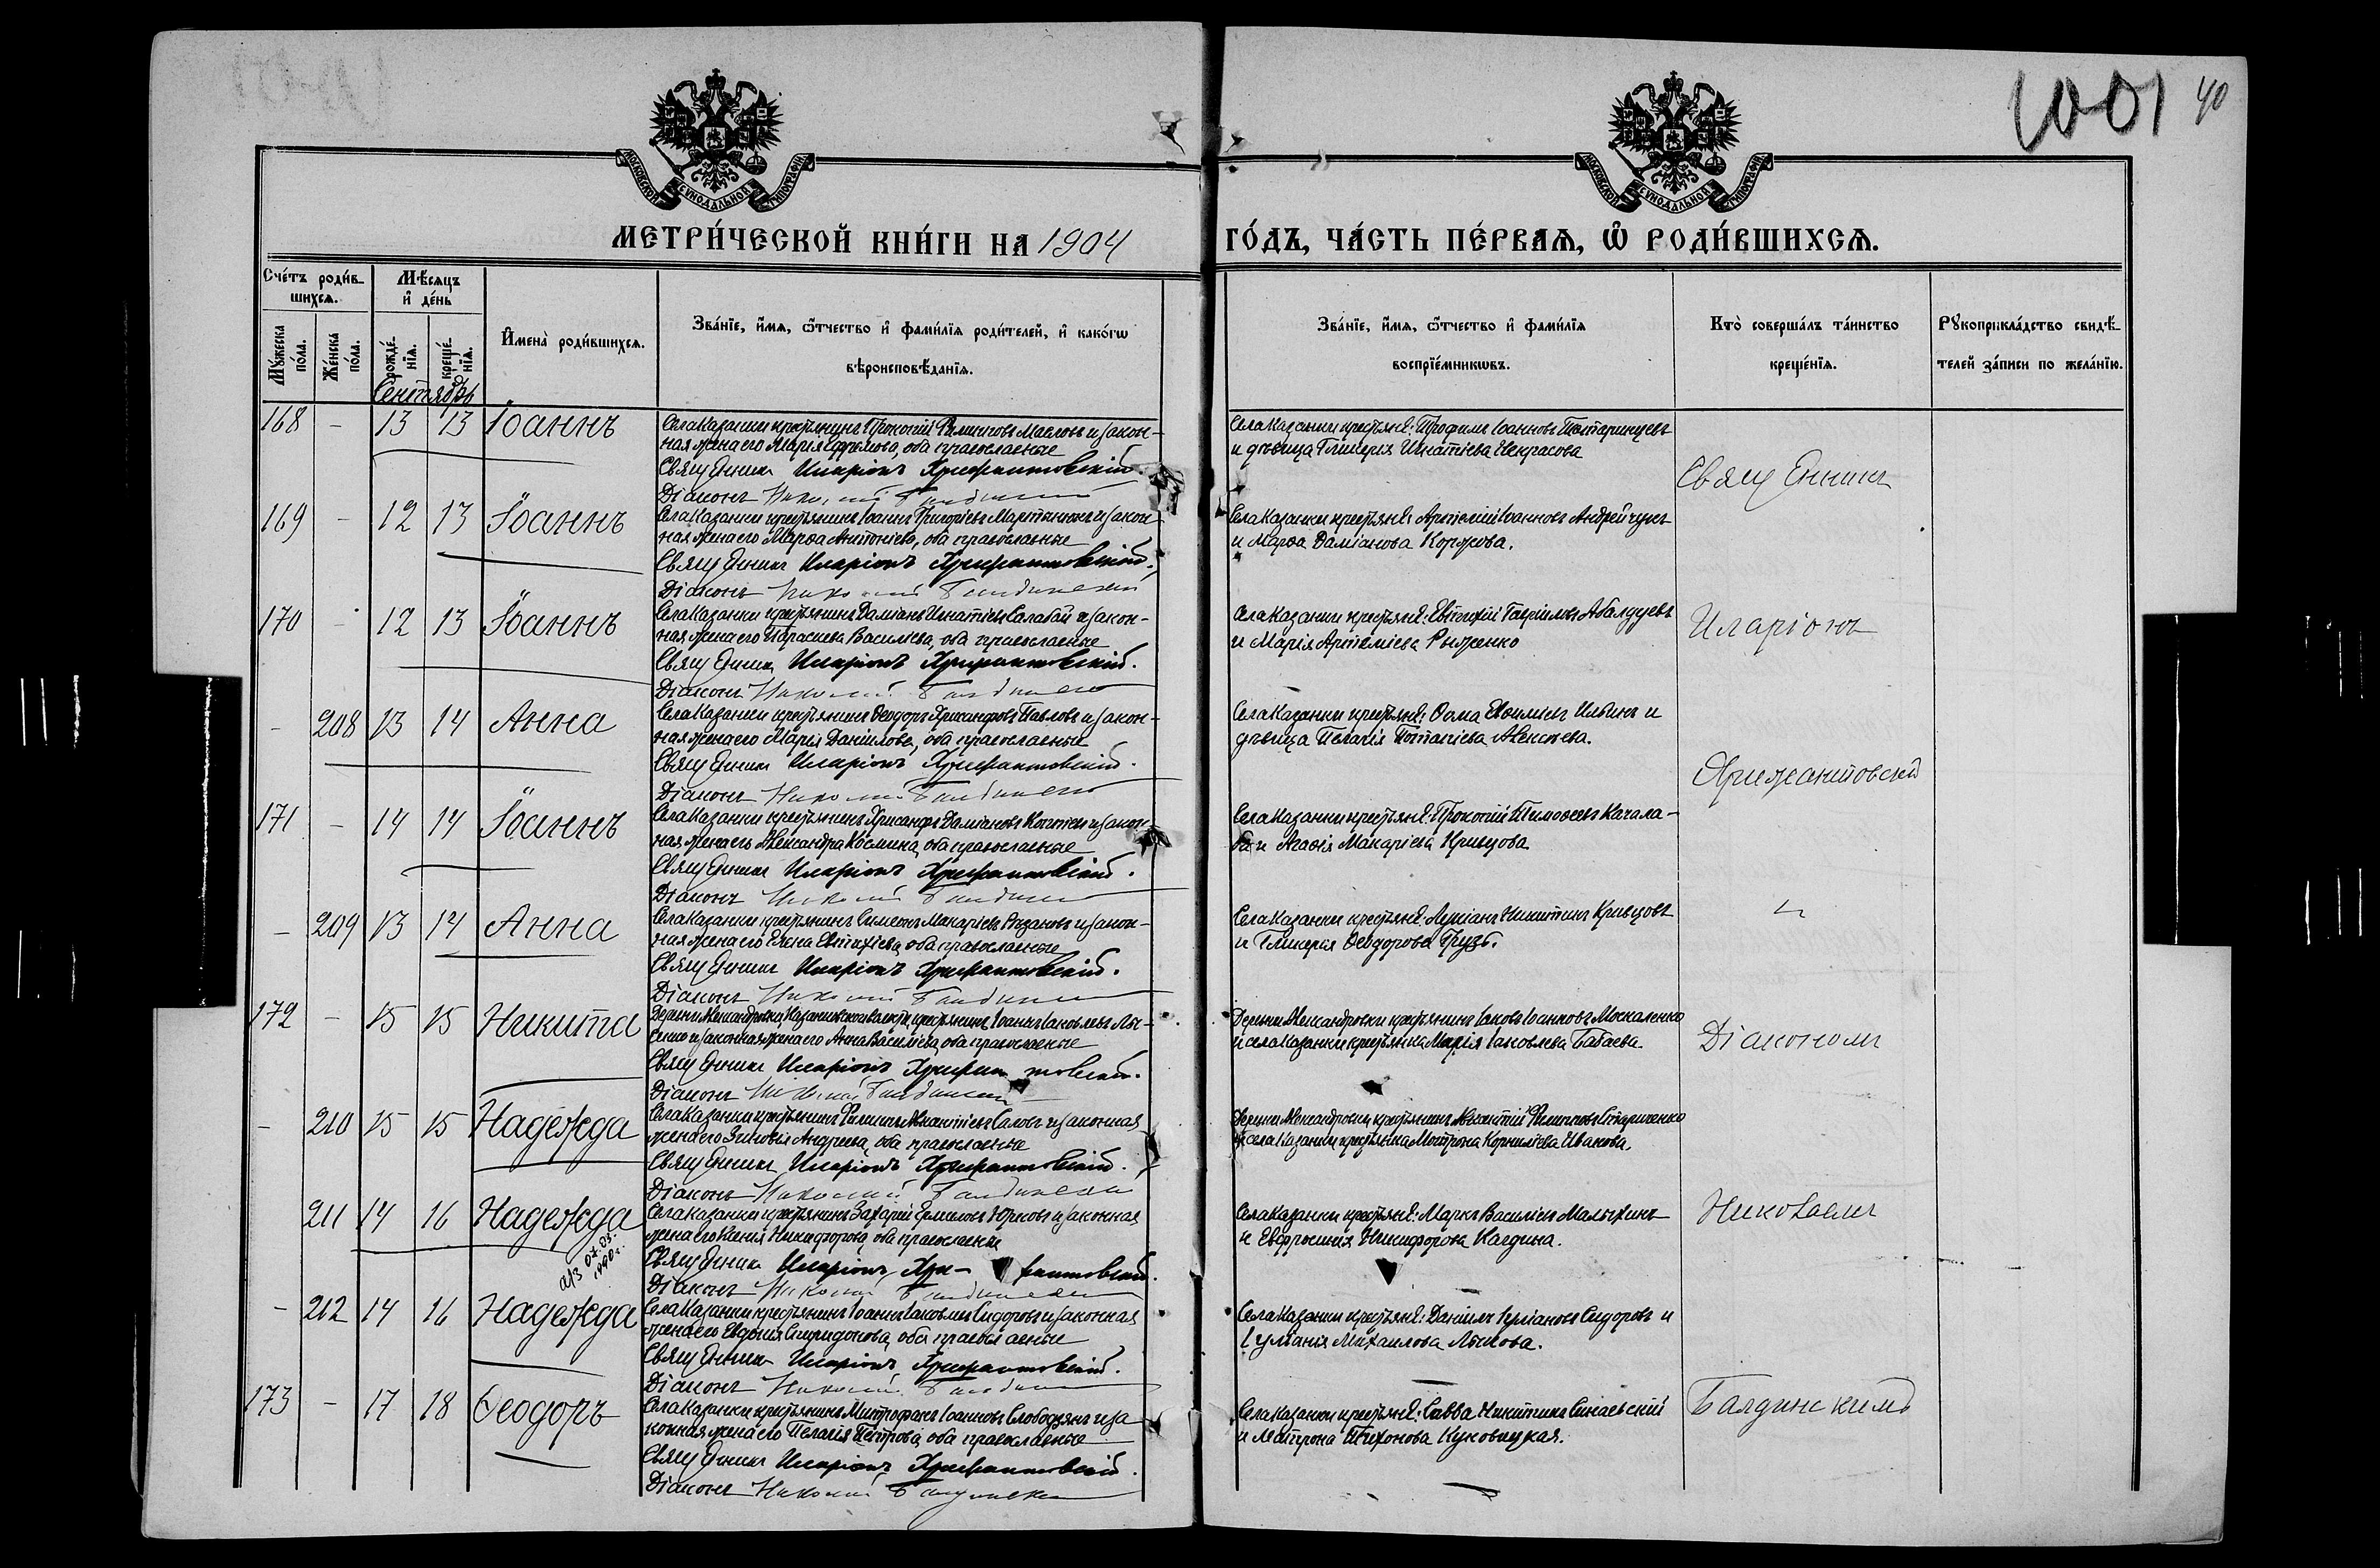 1001 40
МОСКОВСКОЙ СѴНОДАЛЬНОЙ ТИПОГРАФІИ
МОСКОВСКОЙ СѴНОДАЛЬНОЙ ТИПОГРАФІИ
МЕТРИ́ЧЕСКОЙ КНИ́ГИ НА 1904 ГО́ДЪ, ЧА́СТЬ ПЕ́РВАѦ, Ѽ РОДИ́ВШИХСѦ.
Сче́тъ роди́вшихсѧ.
Мѣ́сѧцъ и҆ де́нь
Мꙋ́жеска по́ла.
Же́нска по́ла.
рожде́нїѧ.
креще́нїѧ.
И҆мена̀ роди́вшихсѧ.
Зва́нїе, и҆́мѧ, ѻ҆́тчество и҆ фами́лїѧ роди́телей, и҆ како́гѡ
вѣроисповѣ́данїѧ.
Зва́нїе, и҆́мѧ, ѻ҆́тчество и҆ фами́лїѧ
воспрїе́мникѡвъ.
Кто̀ соверша́лъ та́инство
креще́нїѧ.
Рꙋкоприкла́дство свидѣ́-
телей за́писи по жела́нїю.
Сентябрь
168 - 13 13 Іоаннъ
Села Казанки крестьянинъ Прокопій Филипповъ Маслов и закон-
ная жена его Марія Ефремова, оба православные
Священникъ Иларіонъ Хрисантовскій
Діаконъ Николай Балдинскій
Села Казанки крестьяне: Трофимъ Іоанновъ
и дѣвица Гликерія Игнатіева Некрасова
Священникъ
169 - 12 13 Іоаннъ
Села Казанки крестьянинъ Іоаннъ Григоріевъ Мартынюк и закон-
ная жена его Марѳа Антоніева, оба православные
Священникъ Иларіонъ Хрисантовскій.
Діаконъ Николай Балдинскій
Села Казанки крестьяне: Артемій Іоанновъ Андрейчукъ
и Марѳа Даміанова Коржова.
170 - 12 13 Іоаннъ
Села Казанки крестьянинъ Даміанъ Игнатіевъ Салабай и закон-
ная жена его Параскева Васильева, оба православные
Священникъ Иларіонъ Хрисантовскій.
Діаконъ Николай Балдинскій
Села Казанки крестьяне: Евтихій Гавріиловъ Абалдуевъ
и Марія Артеміева Рыженко
Иларіонъ
- 208 13 14 Анна
Села Казанки крестьянинъ Ѳеодоръ Хрисанфовъ Павловъ и закон-
ная жена его Марія Даніилова, оба православные
Священникъ Иларіонъ Хрисантовскій.
Діаконъ Николай Балдинскій
Села Казанки крестьяне: Ѳома Евѳиміевъ Ильинъ и
дѣвица Пелагія Потапіева Алексѣева.
Хрисантовскій
171 - 14 14 Іоаннъ
Села Казанки крестьянинъ Хрисанфъ Даміановъ и закон-
ная жена его Александра Космина, оба православные
Священникъ Иларіонъ Хрисантовскій.
Діаконъ Николай Балдинскій
Села Казанки крестьяне: Прокопій Тимоѳеевъ Качала-
ба и Агаѳія Макаріева Кривцова
- 209 13 14 Анна
Села Казанки крестьянинъ Симеонъ Макаріевъ Рязановъ и закон-
ная жена его Елена Евтихіева, оба православные
Священникъ Иларіонъ Хрисантовскій.
Діаконъ Николай Балдинскій
Села Казанки крестьяне: Лукіанъ Никитинъ Кривцовъ
и Гликерія Ѳеодорова Грузъ.
и
172 - 15 15 Никита
Деревни Александровки, Казанковской волости, крестьянинъ Іоаннъ Іаковлевъ Лы-
сенко и законная жена его Анна Васильева, оба православные
Священникъ Иларіонъ Хрисантовскій.
Діаконъ Николай Балдинскій
Деревни Александровки крестьянинъ Іаковъ Іоанновъ Москаленко
и села Казанки крестьянка Марія Іаковлева Бабаева.
Діакономъ
- 210 15 15 Надежда
Села Казанки крестьянинъ Филиппъ Саловъ и законная
жена его Зиновія Андреева, оба православные
Священникъ Иларіонъ Хрисантовскій.
Діаконъ Николай Балдинскій
Деревни Александровки крестьянинъ Филипповъ Стариченко
и села Казанки крестьянка Матрона Корниліева Иванова.
211 14 16 Надежда
а/з 07.03.
1990г.
Села Казанки крестьянинъ Захарій Ермиловъ Юрковъ и законная
жена его Ксенія Никифорова, оба православные
Священникъ Иларіонъ Хри- сантовскій.
Діаконъ Николай Балдинскій
Села Казанки крестьяне: Маркъ Васильевъ Малыхинъ
и Евфросинія Никифорова Кагдина.
Николаемъ
- 212 14 16 Надежда
Села Казанки крестьянинъ Іоаннъ Іаковлевъ Сидоровъ и законная
жена его Евдокія Спиридонова, оба православные
Священникъ Иларіонъ Хрисантовскій.
Діаконъ Николай Балдинскій
Села Казанки крестьяне: Даніилъ Іуліановъ Сидоровъ и
Іуліанія Михаилова Лыкова.
173 - 17 18 Ѳеодоръ
Села Казанки крестьянинъ Митрофанъ Іоанновъ Слободянъ и за-
конная жена его Пелагія Петрова, оба православные
Священникъ Иларіонъ Хрисантовскій.
Діаконъ Николай Балдинскій
Села Казанки крестьяне: Савва Никитинъ Синаевскій
и Матрона Тихонова Куновицкая.
Балдинскимъ